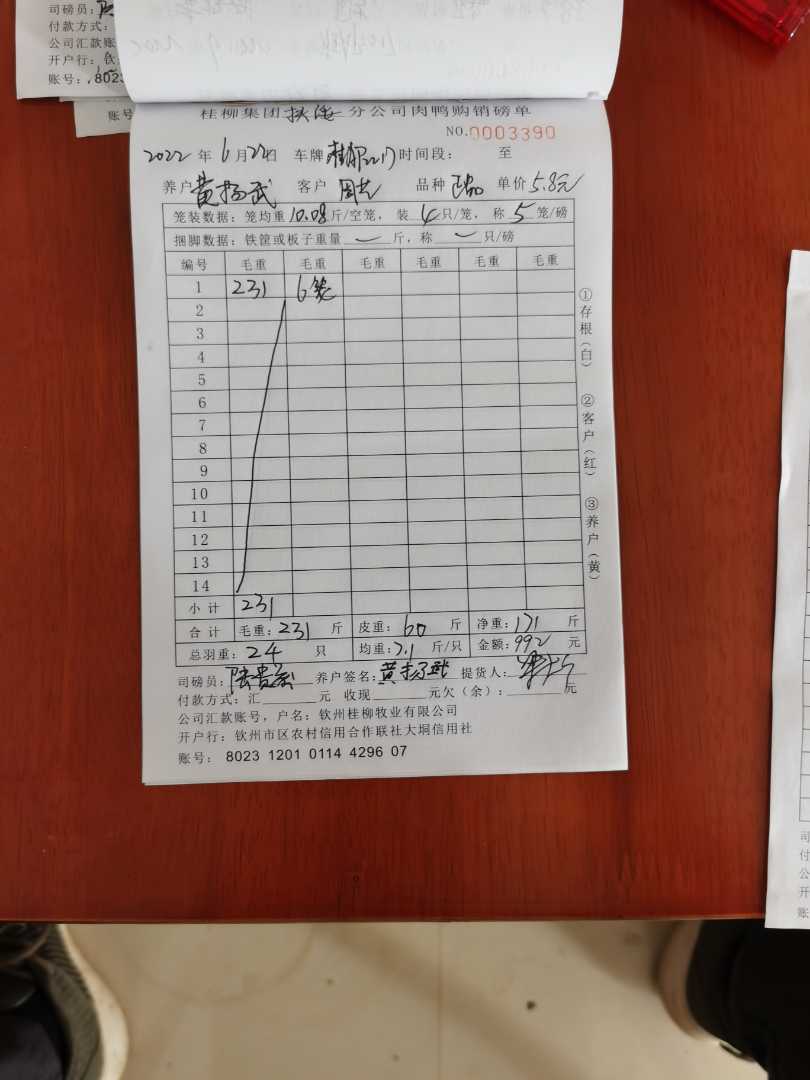 司磅员:
付款方式:
公司汇款账
开户行:
账号: 8023
账号
桂柳集团 扶海 分公司肉鸭购销磅单
NO.0003390
2022年6月22日 车牌 桂柳2217 时间段: 至
养户 黄扬武 客户 周 品种 单价 5.8元
笼装数据: 笼均重 10.08 斤/空笼, 装 4 只/笼, 称 5 笼/磅
捆脚数据: 铁筐或板子重量 — 斤, 称 — 只/磅
编号 毛重 毛重 毛重 毛重 毛重 毛重
1 231 6笼
2
3
4
5
6
7
8
9
10
11
12
13
14
小计 231
合计 毛重: 231 斤 皮重: 60 斤 净重: 171 斤
总羽重: 24 只 均重: 7.1 斤/只 金额: 992 元
司磅员: 陆贵 养户签名: 黄扬武 提货人:
付款方式: 汇 元 收现 元欠(余): 元
公司汇款账号, 户名: 钦州桂柳牧业有限公司
开户行: 钦州市区农村信用合作联社大垌信用社
账号: 8023 1201 0114 4296 07
①存根(白) ②客户(红) ③养户(黄)
司
付
公
开
账